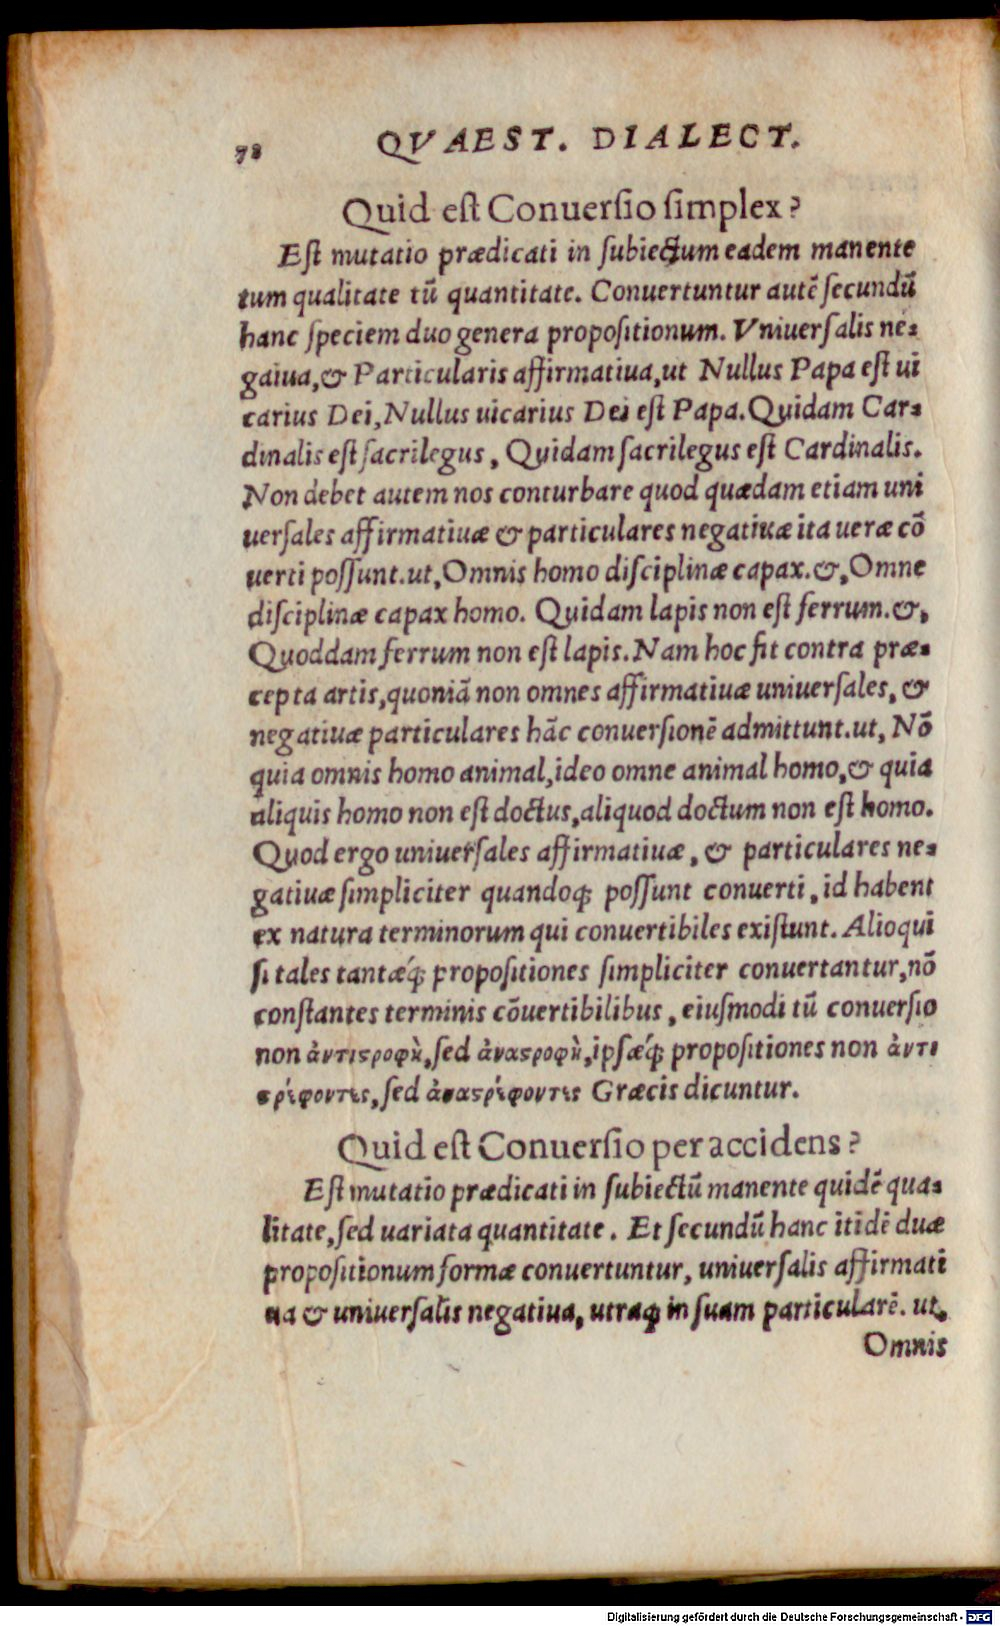 78 QVAEST. DIALECT.
Quid est Conuersio simplex?
Est mutatio prædicati in subiectum eadem manente
tum qualitate tũ quantitate. Conuertuntur autẽ secundũ
hanc speciem duo genera propositionum. Vniuersalis ne-
gaiua, & Particularis affirmatiua, ut Nullus Papa est ui
carius Dei, Nullus uicarius Dei est Papa. Quidam Car-
dinalis est sacrilegus, Quidam sacrilegus est Cardinalis.
Non debet autem nos conturbare quod quædam etiam uni
uersales affirmatiuæ & particulares negatiuæ ita ueræ cõ
uerti possunt. ut, Omnis homo disciplinæ capax. &, Omne
disciplinæ capax homo. Quidam lapis non est ferrum. &,
Quoddam ferrum non est lapis. Nam hoc fit contra præ-
cepta artis, quoniã non omnes affirmatiuæ uniuersales, &
negatiuæ particulares hãc conuersionẽ admittunt. ut, Nõ
quia omnis homo animal, ideo omne animal homo, & quia
aliquis homo non est doctus, aliquod doctum non est homo.
Quod ergo uniuersales affirmatiuæ, & particulares ne-
gatiuæ simpliciter quandoq; possunt conuerti, id habent
ex natura terminorum qui conuertibiles existunt. Alioqui
si tales tantæq́; propositiones simpliciter conuertantur, nõ
constantes terminis cõuertibilibus, eiusmodi tũ conuersio
non ἀντιϛροφὴ, sed ἀναϛροφὴ, ipsæq́; propositiones non ἀντι
ϛρέφοντες, sed ἀναϛρέφοντες Græcis dicuntur.
Quid est Conuersio per accidens?
Est mutatio prædicati in subiectũ manente quidẽ qua-
litate, sed uariata quantitate. Et secundũ hanc itidẽ duæ
propositionum formæ conuertuntur, uniuersalis affirmati
ua & uniuersalis negatiua, utraq; in suam particularẽ. ut,
Omnis
Digitalisierung gefördert durch die Deutsche Forschungsgemeinschaft - DFG